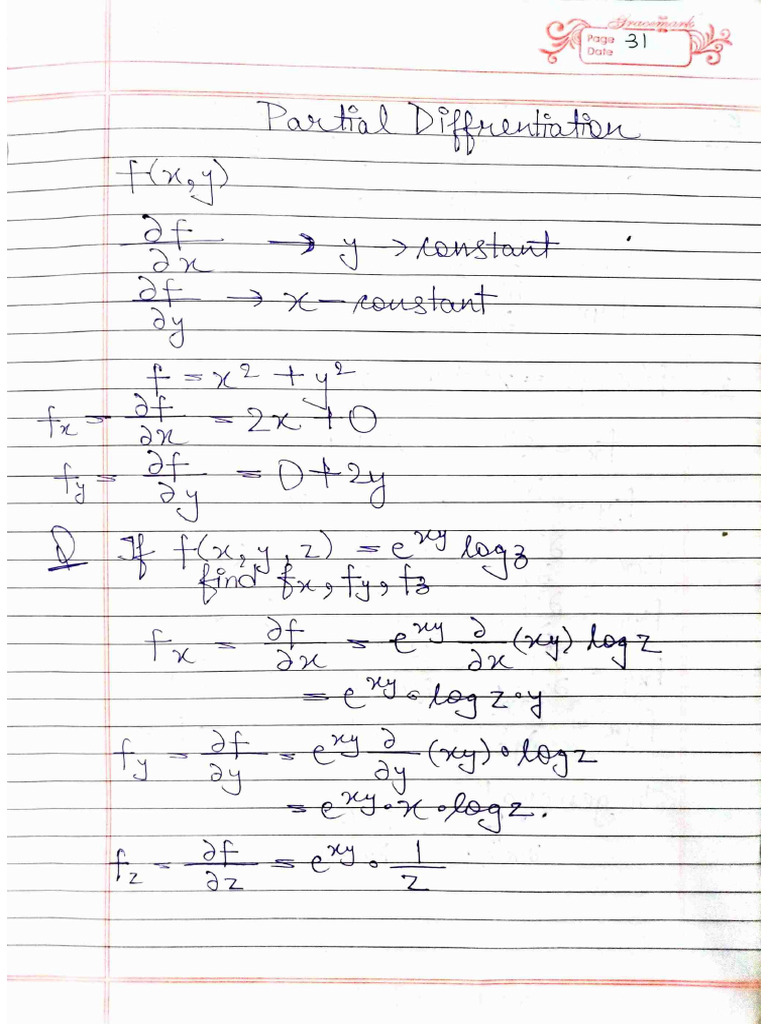 Gracemark
Page 31
Date
Partial Diffrentiation
f(x,y)
∂f/∂x → y → constant
∂f/∂y → x – constant
f = x² + y²
fx = ∂f/∂x = 2x + 0
fy = ∂f/∂y = 0 + 2y
Q If f(x,y,z) = e^xy log z
find fx, fy, fz
fx = ∂f/∂x = e^xy ∂/∂x (xy) log z
= e^xy · log z · y
fy = ∂f/∂y = e^xy ∂/∂y (xy) · log z
= e^xy · x · log z.
fz = ∂f/∂z = e^xy · 1/z